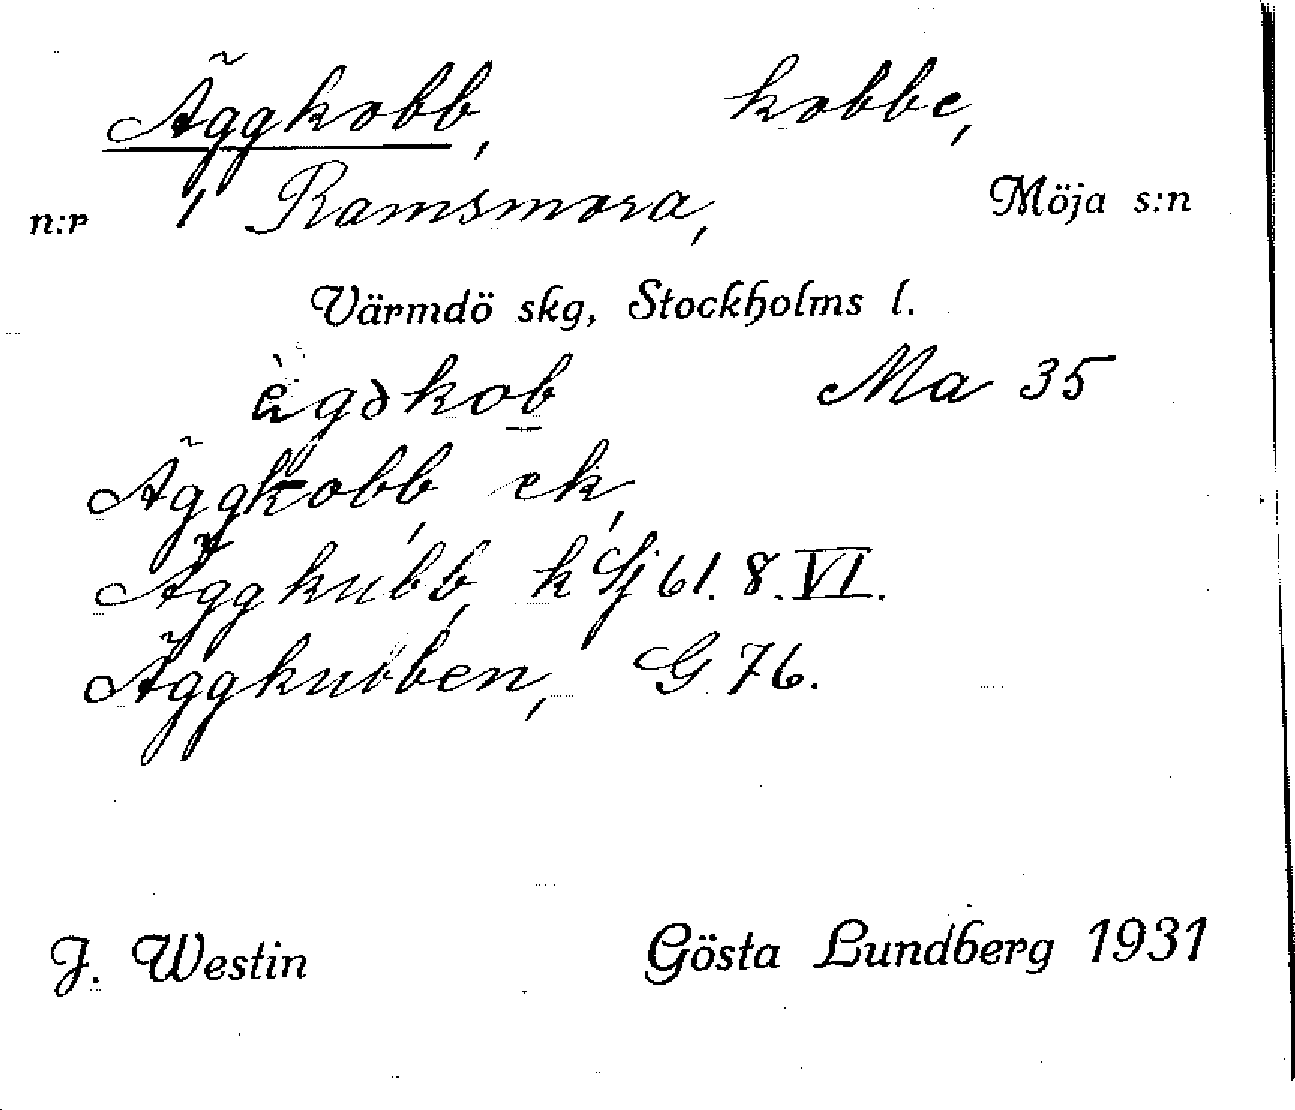 Äggkobb, kobbe,
n:r 1 Ramsmora, Möja s:n
Värmdö skg, Stockholms l.
Ma 35
Äggkobb, ek,
Äggkubb, k Sj 61. 8. VI.
Äggkubben, G 76.
J. Westin Gösta Lundberg 1931